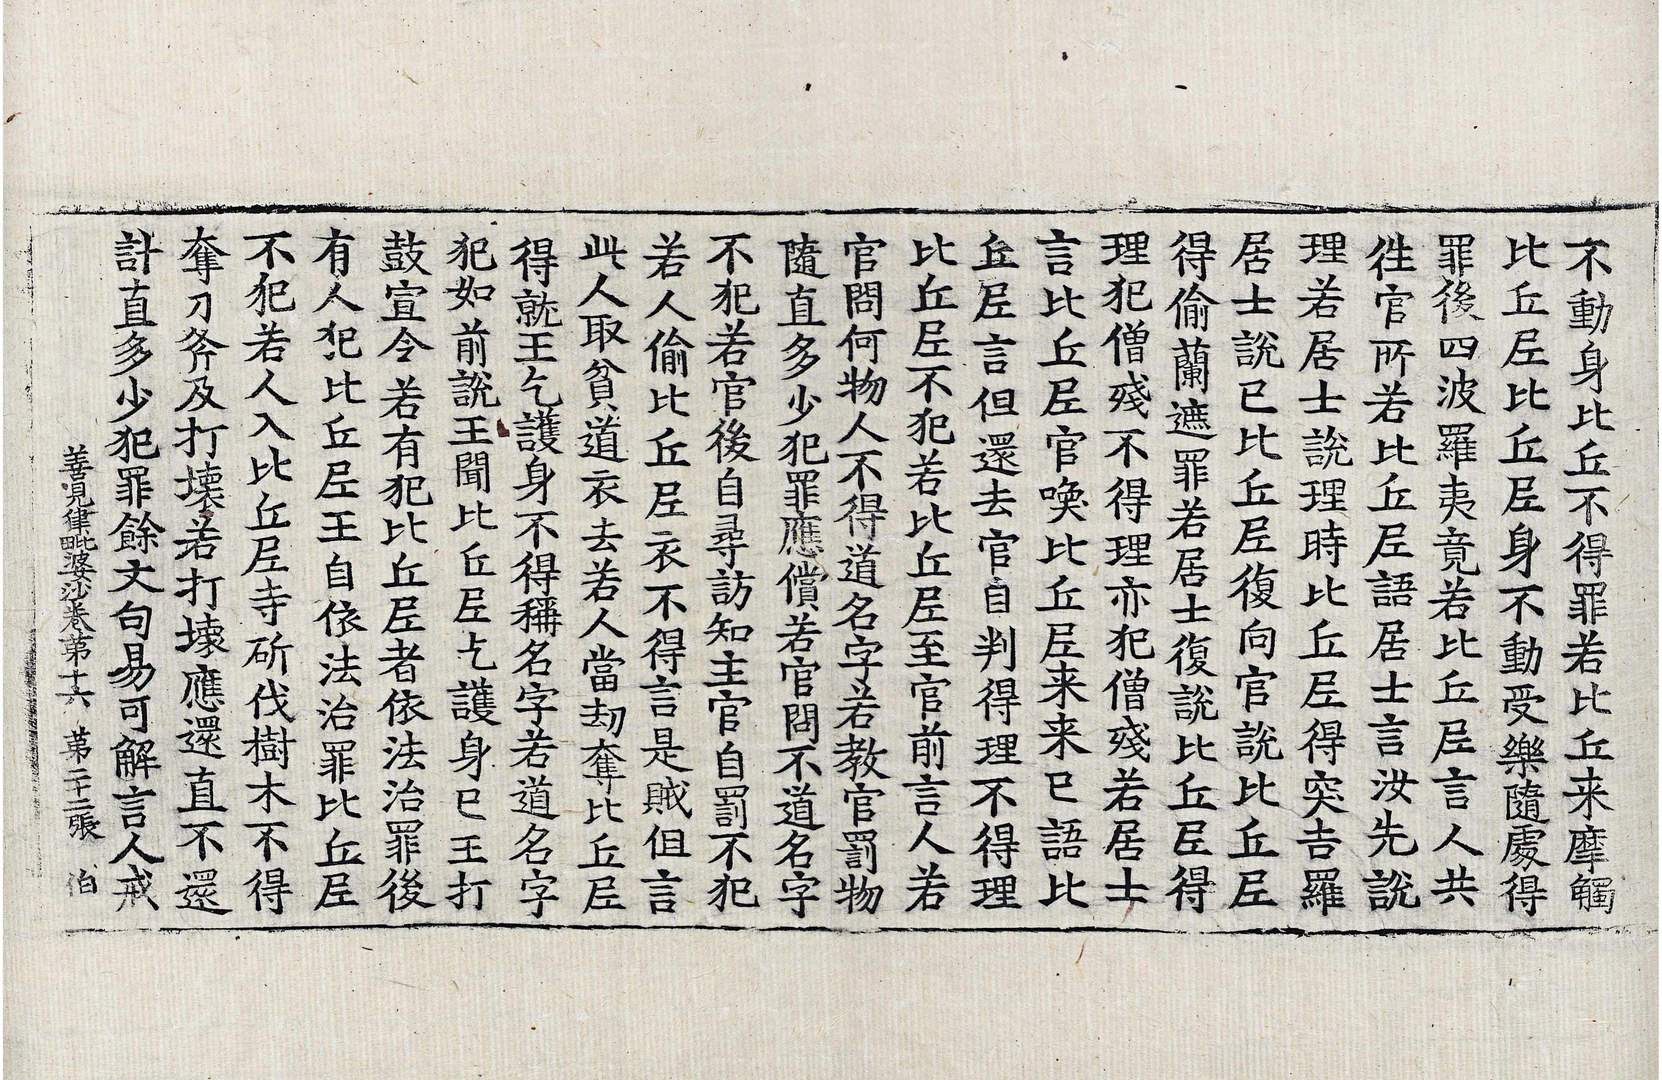 不動身比丘不得罪若比丘来摩觸
比丘𡰱比丘𡰱身不動受樂隨處得
罪後四波羅夷竟若比丘𡰱言人共
徃官所若比丘𡰱語居士言汝先說
理若居士說理時比丘𡰱得突吉羅
居士說已比丘𡰱復向官說比丘𡰱
得偷蘭遮罪若居士復說比丘𡰱得
理犯僧殘不得理亦犯僧殘若居士
言比丘𡰱官喚比丘𡰱来来已語比
丘𡰱言但還去官自判得理不得理
比丘𡰱不犯若比丘𡰱至官前言人若
官問何物人不得道名字若教官罰物
隨直多少犯罪應償若官問不道名字
不犯若官後自尋訪知主官自罰不犯
若人偷比丘𡰱衣不得言是賊但言
此人取貧道衣去若人當劫奪比丘𡰱
得就王乞護身不得稱名字若道名字
犯如前說王聞比丘𡰱乞護身已王打
鼓宣令若有犯比丘𡰱者依法治罪後
有人犯比丘𡰱王自依法治罪比丘𡰱
不犯若人入比丘𡰱寺斫伐樹木不得
奪刀斧及打壞若打壞應還直不還
計直多少犯罪餘文句易可解言人戒
善見律毗婆沙卷第十六 第二十二張 伯